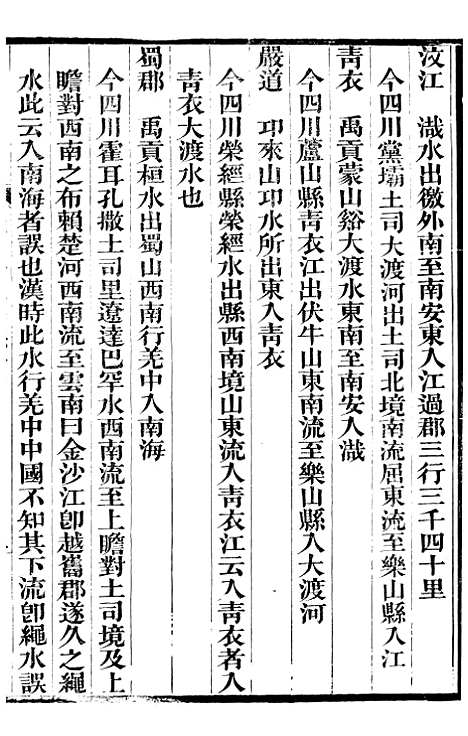 汶江　渽水出徼外南至南安東入江過郡三行三千四十里
今四川黨壩土司大渡河出土司北境南流屈東流至樂山縣入江
青衣　禹貢蒙山谿大渡水東南至南安入渽
今四川蘆山縣青衣江出伏牛山東南流至樂山縣入大渡河
嚴道　邛來山邛水所出東入青衣
今四川榮經縣榮經水出縣西南境山東流入青衣江云入青衣者入
青衣大渡水也
蜀郡　禹貢桓水出蜀山西南行羌中入南海
今四川霍耳孔撒土司里遼達巴罕水西南流至上瞻對土司境及上
瞻對西南之布賴楚河西南流至雲南曰金沙江卽越巂郡遂久之繩
水此云入南海者誤也漢時此水行羌中中國不知其下流卽繩水誤